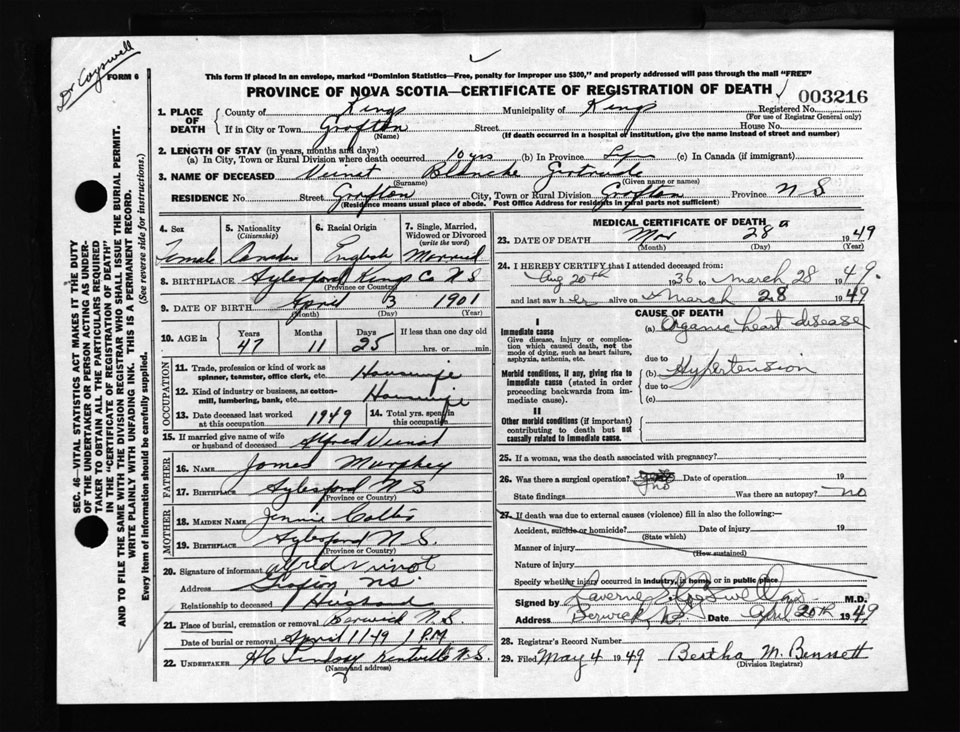 Dr Cogswell
FORM 6
This form if placed in an envelope, marked "Dominion Statistics—Free, penalty for improper use $300," and properly addressed will pass through the mail "FREE"
PROVINCE OF NOVA SCOTIA—CERTIFICATE OF REGISTRATION OF DEATH
003216
1. PLACE OF DEATH { County of Kings Municipality of Kings Registered No.
(For use of Registrar General only)
If in City or Town Grafton Street House No.
(Name) (If death occurred in a hospital of institution, give the name instead of street and number)
2. LENGTH OF STAY (in years, months and days)
(a) In City, Town or Rural Division where death occurred 10 yrs (b) In Province (c) In Canada (if immigrant)
3. NAME OF DECEASED Veinot Blanche Gertrude
(Surname) (Given name or names)
RESIDENCE No. Street Grafton City, Town or Rural Division Grafton Province N S
(Residence means usual place of abode. Post Office Address for residents in rural parts not sufficient)
4. Sex Female
5. Nationality (Citizenship)
6. Racial Origin English
7. Single, Married, Widowed or Divorced (write the word) Married
8. BIRTHPLACE Aylesford Kings Co N S
(Province or Country)
9. DATE OF BIRTH April 3 1901
(Month) (Day) (Year)
10. AGE in { Years 47 Months 11 Days 25 If less than one day old
hrs. or min.
OCCUPATION
11. Trade, profession or kind of work as spinner, teamster, office clerk, etc. Housewife
12. Kind of industry or business, as cotton-mill, lumbering, bank, etc. Housewife
13. Date deceased last worked at this occupation 1949 14. Total yrs. spent in this occupation
15. If married give name of wife or husband of deceased Alfred Veinot
FATHER
16. NAME James Murphey
17. BIRTHPLACE Aylesford N S
(Province or Country)
MOTHER
18. MAIDEN NAME Jennie
19. BIRTHPLACE Aylesford N. S.
(Province or Country)
20. Signature of informant Alfred Vinot
Address Grafton NS.
Relationship to deceased Husband
21. Place of burial, cremation or removal Berwick N. S.
Date of burial or removal April 1 1 P.M
22. UNDERTAKER H C Lindsay Kentville N. S.
(Name and address)
MEDICAL CERTIFICATE OF DEATH
23. DATE OF DEATH Mar 28 1949
(Month) (Day) (Year)
24. I HEREBY CERTIFY that I attended deceased from:
Aug 20th 1936 to March 28 1949.
and last saw her alive on March 28 1949
CAUSE OF DEATH
I
Immediate cause
Give disease, injury or complication which caused death, not the mode of dying, such as heart failure, asphyxia, asthenia, etc.
(a) Organic heart disease
due to
Morbid conditions, if any, giving rise to immediate cause (stated in order proceeding backwards from immediate cause).
(b) Hypertension
due to
(c)
II
Other morbid conditions (if important) contributing to death but not causally related to immediate cause.
25. If a woman, was the death associated with pregnancy?
26. Was there a surgical operation? no Date of operation 19
State findings Was there an autopsy? no
27. If death was due to external causes (violence) fill in also the following:—
Accident, suicide or homicide? Date of injury 19
(State which)
Manner of injury
(How sustained)
Nature of injury
Specify whether injury occurred in industry, in home, or in public place
Signed by Laverne Cogswell M.D.
Address Berwick, N.S. Date April 20th 1949
28. Registrar's Record Number
29. Filed May 4 1949 Bertha M. Bennett
(Division Registrar)
SEC. 46—VITAL STATISTICS ACT MAKES IT THE DUTY
OF THE UNDERTAKER OR PERSON ACTING AS UNDER-
TAKER TO OBTAIN ALL THE PARTICULARS REQUIRED
IN THE "CERTIFICATE OF REGISTRATION OF DEATH"
AND TO FILE THE SAME WITH THE DIVISION REGISTRAR WHO SHALL ISSUE THE BURIAL PERMIT.
WRITE PLAINLY WITH UNFADING INK. THIS IS A PERMANENT RECORD.
Every item of information should be carefully supplied. (See reverse side for instructions.)